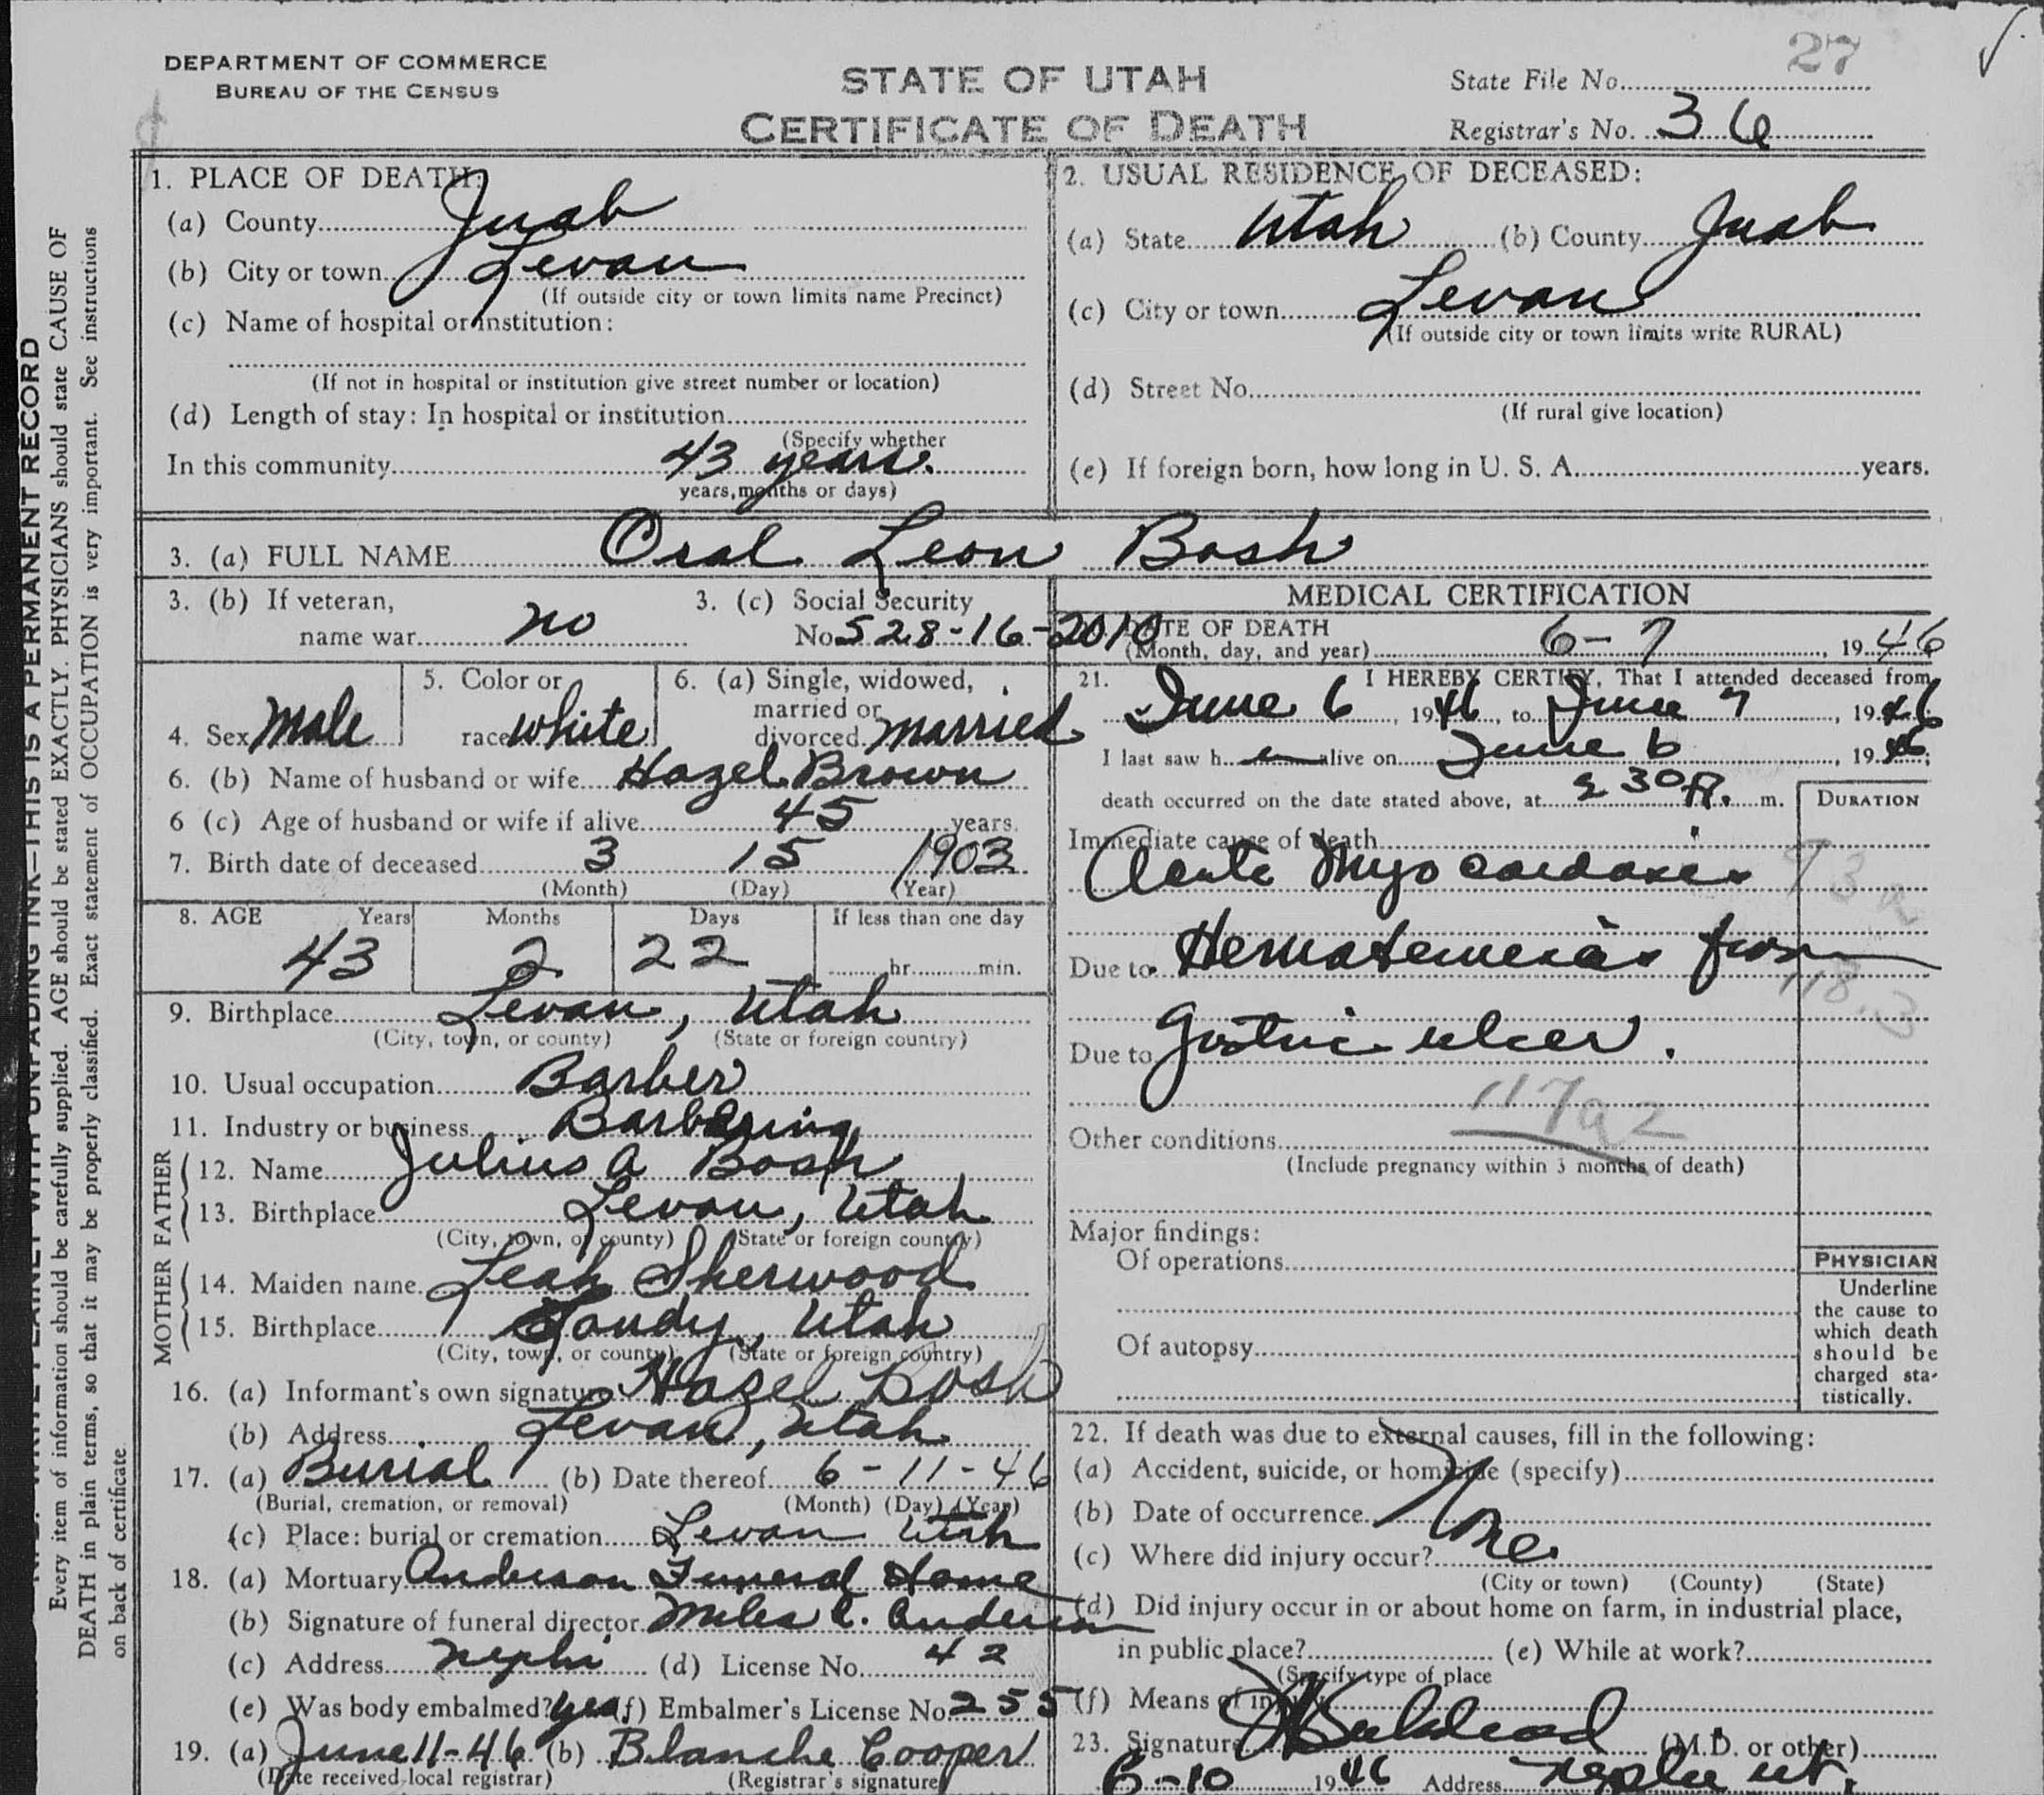 DEPARTMENT OF COMMERCE
BUREAU OF THE CENSUS
STATE OF UTAH
CERTIFICATE OF DEATH
27
State File No.
Registrar's No. 36
THIS IS A PERMANENT RECORD
Every item of information should be carefully supplied. AGE should be stated EXACTLY. PHYSICIANS should state CAUSE OF
DEATH in plain terms, so that it may be properly classified. Exact statement of OCCUPATION is very important. See instructions
on back of certificate
1. PLACE OF DEATH:
(a) County Juab
(b) City or town Levan
(If outside city or town limits name Precinct)
(c) Name of hospital or institution:
(If not in hospital or institution give street number or location)
(d) Length of stay: In hospital or institution
(Specify whether
In this community 43 years.
years, months or days)
2. USUAL RESIDENCE OF DECEASED:
(a) State Utah (b) County Juab
(c) City or town Levan
(If outside city or town limits write RURAL)
(d) Street No.
(If rural give location)
(e) If foreign born, how long in U. S. A. years.
3. (a) FULL NAME Oral Leon Bosh
3. (b) If veteran,
name war no
3. (c) Social Security
No 528-16-2010
4. Sex Male
5. Color or
race white
6. (a) Single, widowed,
married or
divorced married
6. (b) Name of husband or wife Hazel Brown
6 (c) Age of husband or wife if alive 45 years.
7. Birth date of deceased 3 15 1903
(Month) (Day) (Year)
8. AGE Years Months Days If less than one day
43 2 22 hr. min.
9. Birthplace Levan, Utah
(City, town, or county) (State or foreign country)
10. Usual occupation Barber
11. Industry or business Barbering
FATHER
12. Name Julius A Bosh
13. Birthplace Levan, Utah
(City, town, or county) (State or foreign country)
MOTHER
14. Maiden name Leah Sherwood
15. Birthplace Sandy, Utah
(City, town, or county) (State or foreign country)
16. (a) Informant's own signature Hazel Bosh
(b) Address Levan, Utah
17. (a) Burial (b) Date thereof 6-11-46
(Burial, cremation, or removal) (Month) (Day) (Year)
(c) Place: burial or cremation Levan Utah
18. (a) Mortuary Anderson Funeral Home
(b) Signature of funeral director Miles L. Anderson
(c) Address Nephi (d) License No. 42
(e) Was body embalmed? yes (f) Embalmer's License No. 255
19. (a) June 11-46 (b) Blanche Cooper
(Date received local registrar) (Registrar's signature)
MEDICAL CERTIFICATION
DATE OF DEATH
(Month, day, and year) 6-7, 1946
21. I HEREBY CERTIFY, That I attended deceased from
June 6, 1946, to June 7, 1946
I last saw h alive on June 6, 1946;
death occurred on the date stated above, at 30 m.
DURATION
Immediate cause of death
Acute Myo
93a
Due to Hematemesis from
118.3
Due to Gastric ulcer.
117a2
Other conditions
(Include pregnancy within 3 months of death)
Major findings:
Of operations
Of autopsy
PHYSICIAN
Underline
the cause to
which death
should be
charged sta-
tistically.
22. If death was due to external causes, fill in the following:
(a) Accident, suicide, or homicide (specify)
(b) Date of occurrence
None
(c) Where did injury occur?
(City or town) (County) (State)
(d) Did injury occur in or about home on farm, in industrial place,
in public place? (e) While at work?
(Specify type of place
(f) Means of injury
23. Signature (M.D. or other)
6-10 1946 Address Nephi Ut.